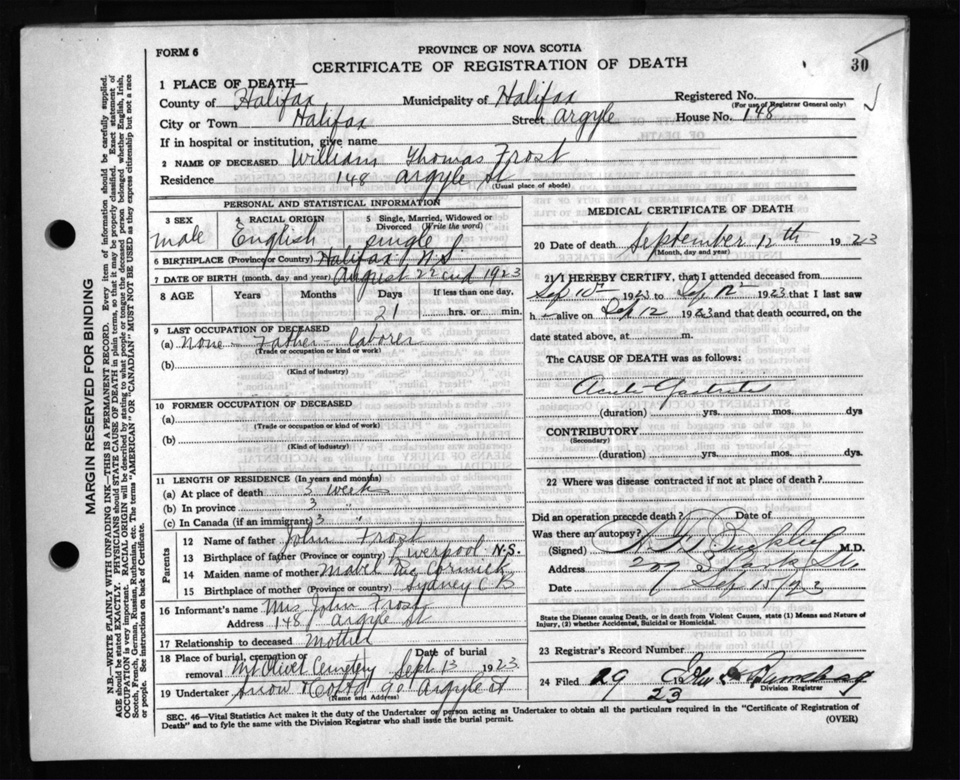 FORM 6
PROVINCE OF NOVA SCOTIA
CERTIFICATE OF REGISTRATION OF DEATH
30
1 PLACE OF DEATH—
County of Halifax Municipality of Halifax Registered No.
(For use of Registrar General only)
City or Town Halifax Street Argyle House No. 148
If in hospital or institution, give name
2 NAME OF DECEASED William Thomas Frost
Residence 148 Argyle St
(Usual place of abode)
PERSONAL AND STATISTICAL INFORMATION
3 SEX 4 RACIAL ORIGIN 5 Single, Married, Widowed or Divorced (Write the word)
male English single
6 BIRTHPLACE (Province or Country) Halifax N S
7 DATE OF BIRTH (month, day and year) August 22nd 1923
8 AGE Years Months Days If less than one day,
21 hrs. or min.
9 LAST OCCUPATION OF DECEASED
(a) None Father laborer
(Trade or occupation or kind or work)
(b)
(Kind of industry)
10 FORMER OCCUPATION OF DECEASED
(a)
(Trade or occupation or kind of work)
(b)
(Kind of industry)
11 LENGTH OF RESIDENCE (In years and months)
(a) At place of death 3 weeks
(b) In province 3 "
(c) In Canada (if an immigrant) 3 "
Parents
12 Name of father John Frost
13 Birthplace of father (Province or country) Liverpool N.S.
14 Maiden name of mother Mabel McCormick
15 Birthplace of mother (Province or country) Sydney C B
16 Informant's name Mrs John Frost
Address 148 Argyle St
17 Relationship to deceased Mother
18 Place of burial, cremation or removal Mt Olivet Cemetery Date of burial Sept 13 1923
19 Undertaker Snow & Co Ltd 90 Argyle St
(Name and Address)
MEDICAL CERTIFICATE OF DEATH
20 Date of death September 12th 1923
(Month, day and year)
21 I HEREBY CERTIFY, that I attended deceased from
Sep 10th 1923 to Sep 12th 1923 that I last saw
h alive on Sep 12 1923 and that death occurred, on
date stated above, at m.
The CAUSE OF DEATH was as follows:
Acute Gastritis
(duration) yrs. mos. dys
CONTRIBUTORY
(Secondary)
(duration) yrs. mos. dys.
22 Where was disease contracted if not at place of death?
Did an operation precede death? Date of
Was there an autopsy?
(Signed) Buckley M.D.
Address St.
Date Sep 15/23
State the Disease causing Death, or in death from Violent Causes, state (1) Means and Nature of Injury, (2) whether Accidental, Suicidal or Homicidal.
23 Registrar's Record Number
24 Filed 29 19 23
Division Registrar
SEC. 46—Vital Statistics Act makes it the duty of the Undertaker or person acting as Undertaker to obtain all the particulars required in the "Certificate of Registration of
Death" and to fyle the same with the Division Registrar who shall issue the burial permit.
(OVER)
MARGIN RESERVED FOR BINDING
N.B.—WRITE PLAINLY WITH UNFADING INK—THIS IS A PERMANENT RECORD. Every item of information should be carefully supplied.
AGE should be stated EXACTLY. PHYSICIANS should STATE CAUSE OF DEATH in plain terms, so that it may be properly classified. Exact statement of
OCCUPATION is very important. RACIAL ORIGIN will be described by stating to what people or tongue the deceased person belonged whether English, Irish,
Scotch, French, German, Russian, Ruthenian, etc. The terms "AMERICAN" OR "CANADIAN" MUST NOT BE USED as they express citizenship but not a race
or people. See instructions on back of Certificate.